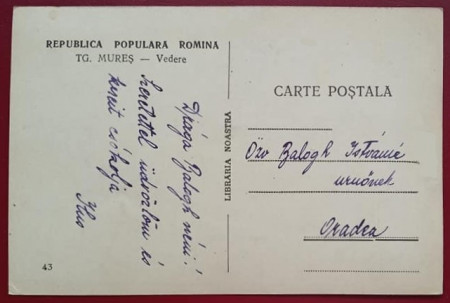 REPUBLICA POPULARA ROMINA
TG. MUREȘ — Vedere
Drága Balogh néni!
Szeretettel üdvözlöm és
kezeit csókolja
43
LIBRĂRIA NOASTRĂ
CARTE POȘTALA
Özv Balogh Istvánné
urnőnek
Oradea